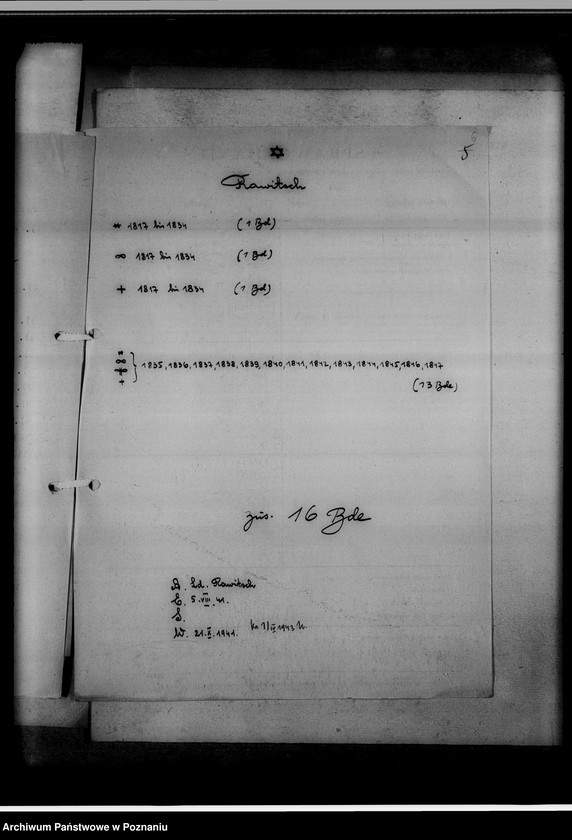 5
✡
Rawitsch
* 1817 bis 1834 (1 Bd)
∞ 1817 bis 1834 (1 Bd)
+ 1817 bis 1834 (1 Bd)
*
∞
+ } 1835, 1836, 1837, 1838, 1839, 1840, 1841, 1842, 1843, 1844, 1845, 1846, 1847
(13 Bde)
zus. 16 Bde
A. Ld. Rawitsch
E. 5.VIII.41.
S.
W. 21.X.1941. 1943
Archiwum Państwowe w Poznaniu